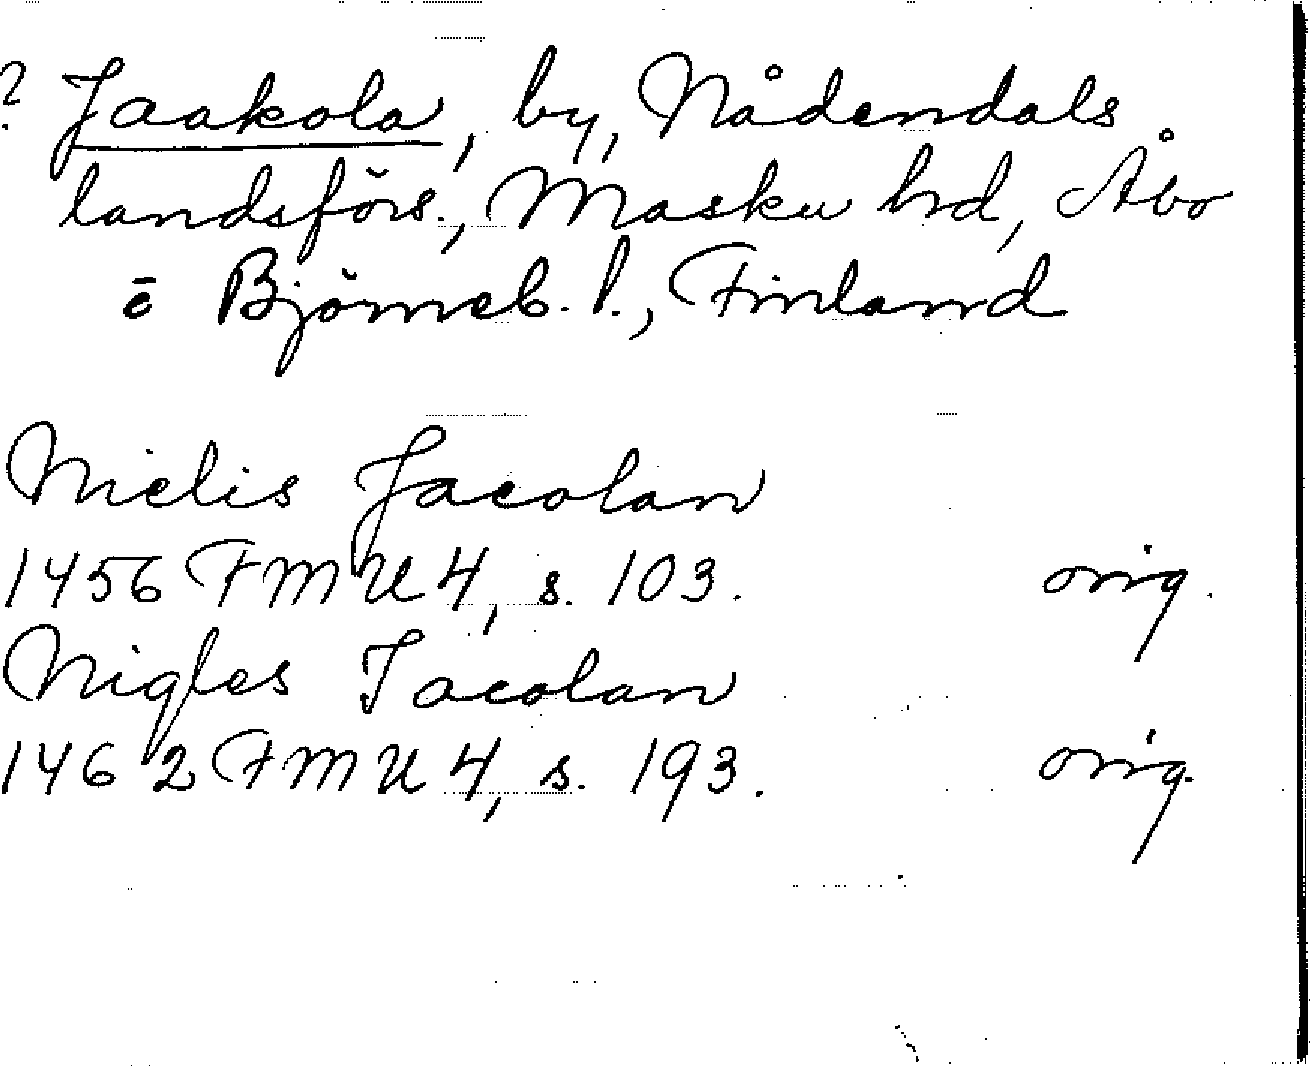 ? Jaakola, by, Nådendals
landsförs., Masku hrd, Åbo
o Björneb. l., Finland
Nielis Jacolan
1456 FMU 4, s. 103. orig.
Nigles Jacolan
1462 FMU 4, s. 193. orig.